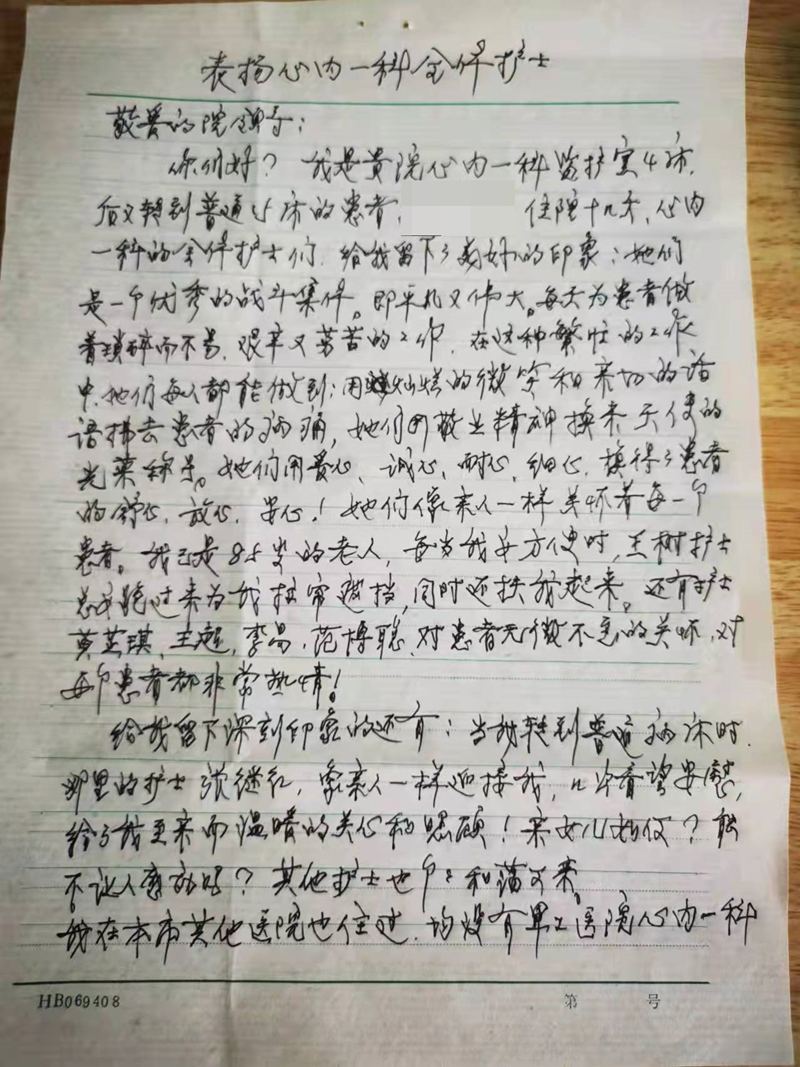 表扬心内一科全体护士
敬爱的院领导:
你们好?我是贵院心内一科监护室4床,
后又转到普通15床的患者, 住院十几天,心内
一科的全体护士们,给我留下了美好的印象:她们
是一个优秀的战斗集体。即平凡又伟大。每天为患者做
着琐碎而不易,艰辛又劳苦的工作,在这种繁忙的工作
中,她们每人都能做到:用灿烂的微笑和亲切的话
语拂去患者的病痛,她们用敬业精神换来天使的
光荣称号。她们用爱心、诚心、耐心、细心,换得了患者
的舒心、放心、安心!她们像亲人一样关怀着每一个
患者。我已是85岁的老人,每当我要方便时,王树护士
总是跑过来为我拉帘遮挡,同时还扶我起来。还有护士
黄芷琪、王超,李易,范博聪,对患者无微不至的关怀,对
每个患者都非常热情!
给我留下深刻印象的还有:当我转到普通病床时,
那里的护士张继红,像亲人一样迎接我,几次看望安慰,
给了我更亲而温暖的关心和照顾!亲女儿如何?能
不让人感动吗?其他护士也个个和蔼可亲。
我在本市其他医院也住过,均没有 医院心内一科
HB069408 第 号